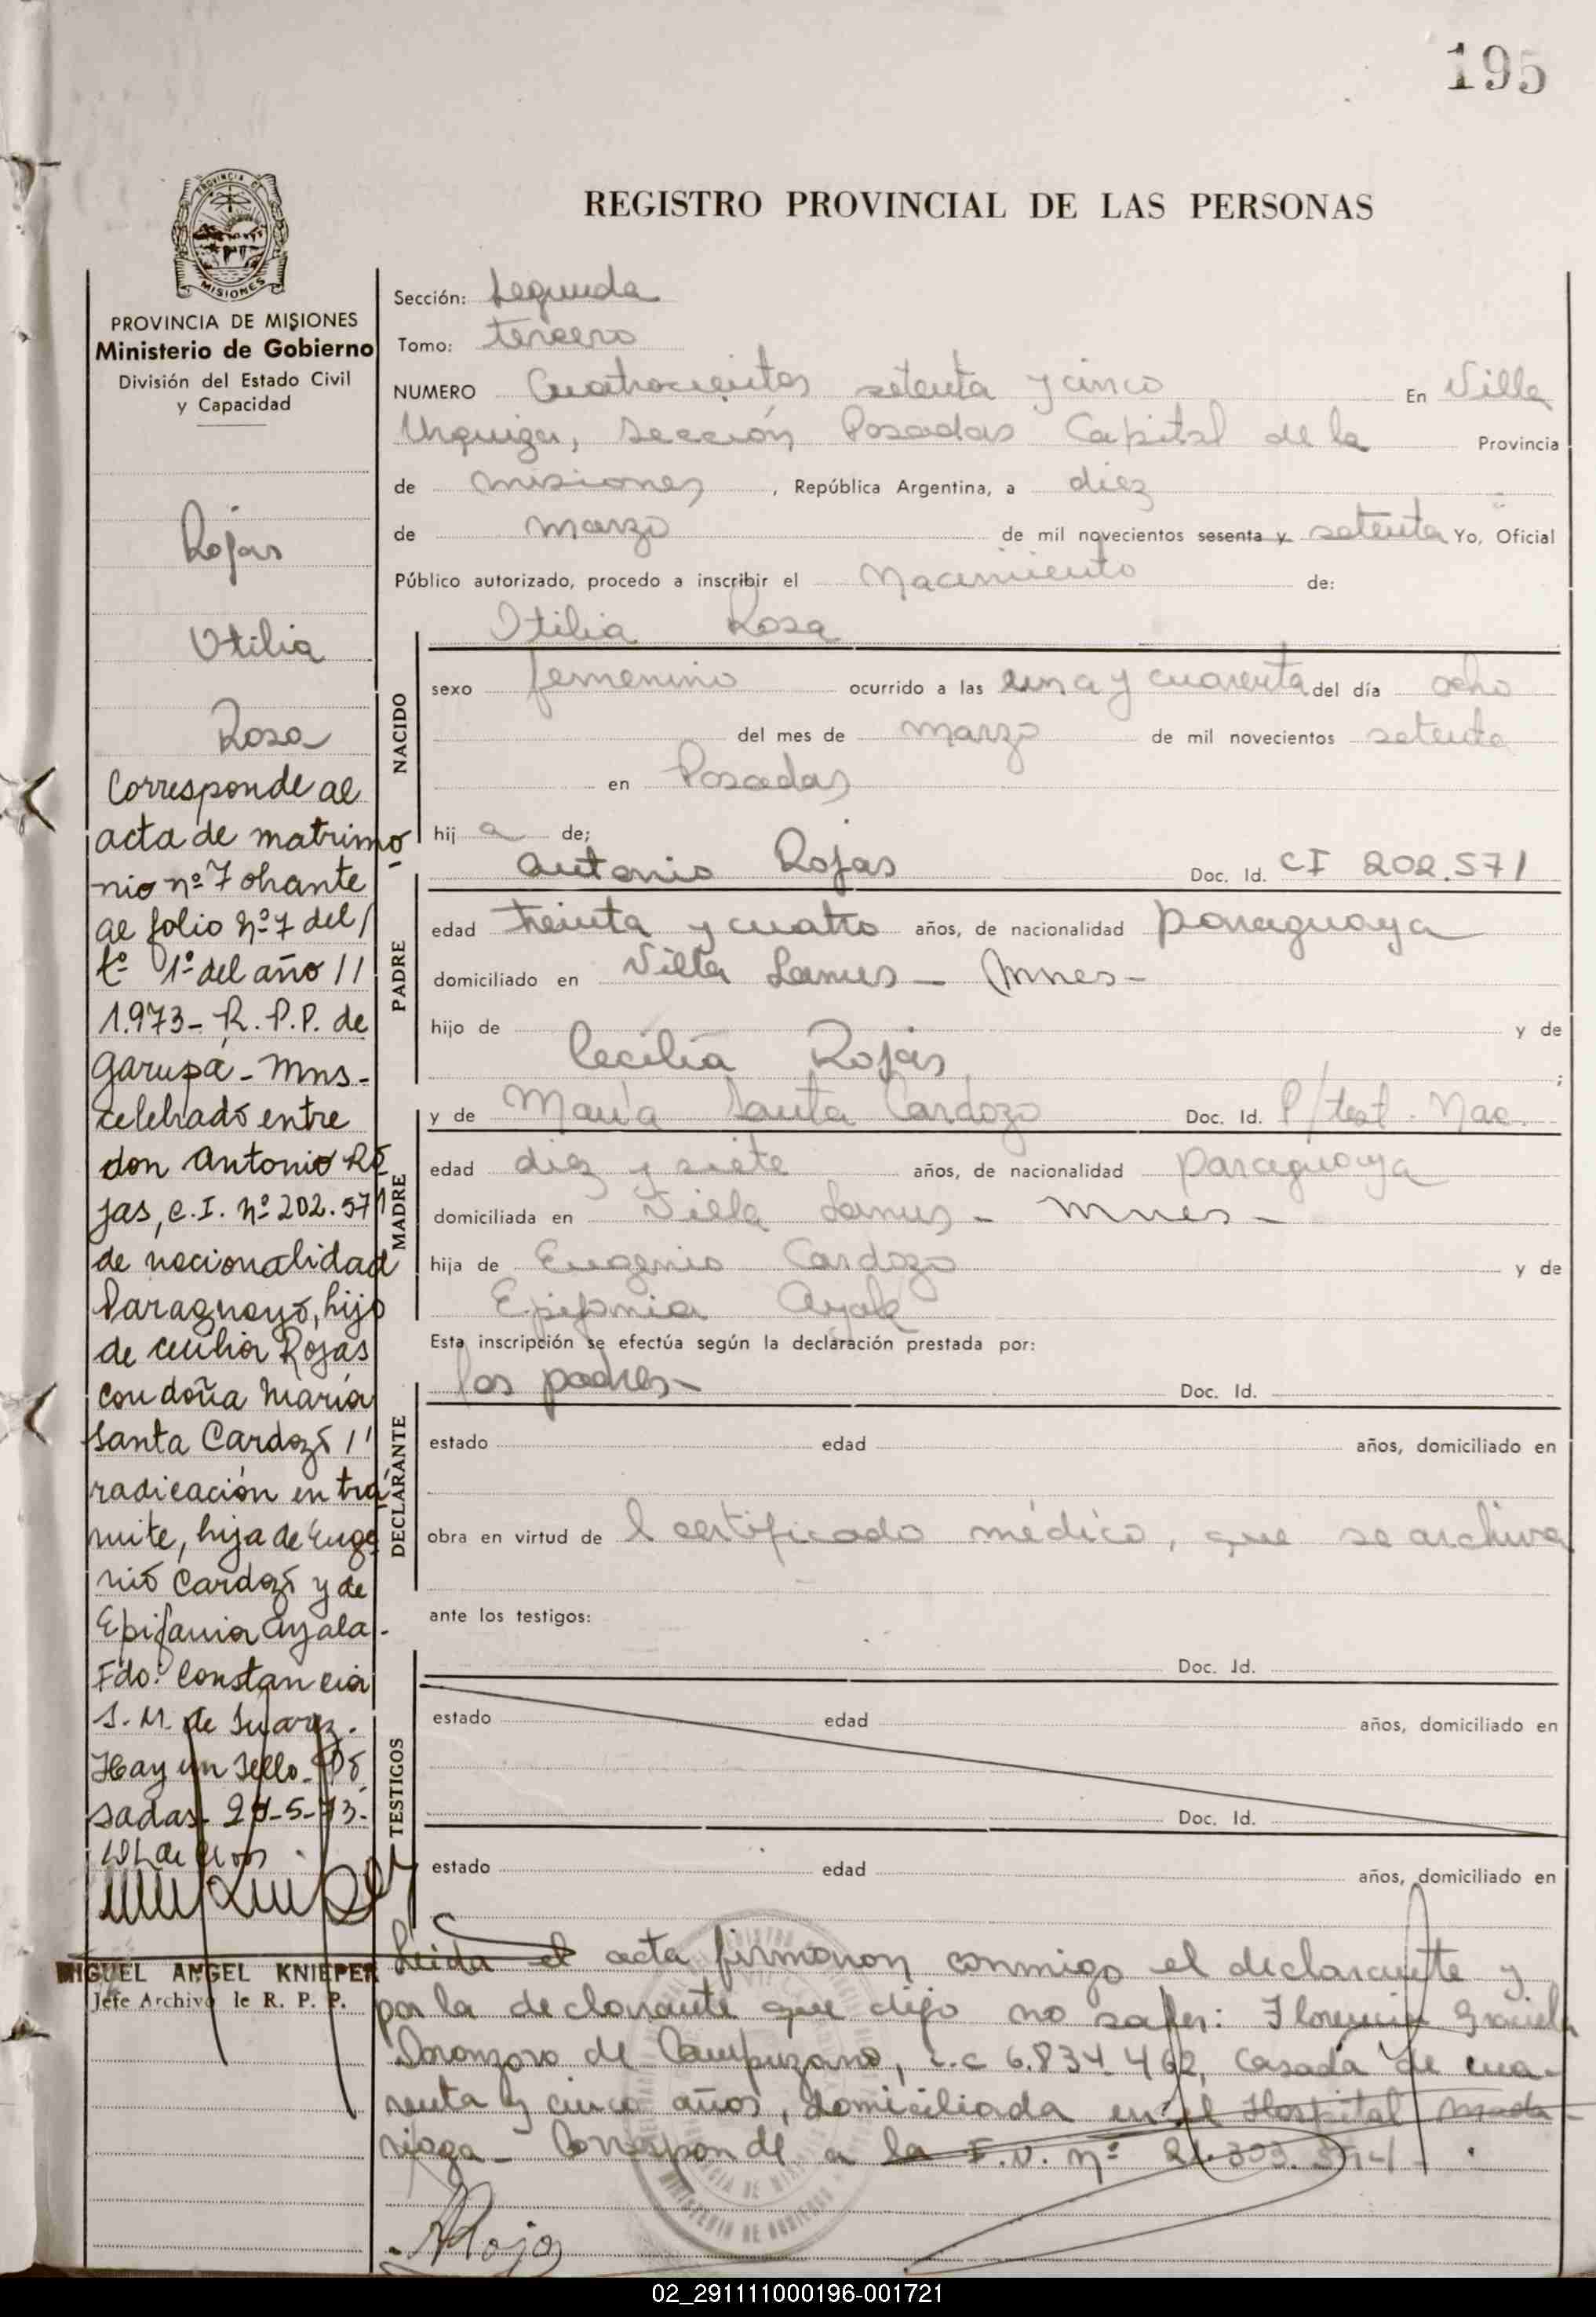 195
REGISTRO PROVINCIAL DE LAS PERSONAS
PROVINCIA DE MISIONES
Ministerio de Gobierno
División del Estado Civil
y Capacidad
Rojas
Otilia
Rosa
Corresponde al
acta de matrimo
nio nº 7 obrante
al folio Nº 7 del/
tº 1º del año //
1.973- R. P.P. de
Garupá - Mns-
celebrado entre
don Antonio Ro
jas, C.I. Nº 202.571
de nacionalidad
Paraguayo, hijo
de Cecilia Rojas
con doña María
Santa Cardozo //
radicación en trá
mite, hija de Euge
nio Cardozo y de
Epifania Ayala-
Fdo: Constancia
S. M. de Suarez.
Hay un Sello- Po
sadas-  -5-73-
MIGUEL ANGEL KNIEPER
Jefe Archivo de R. P. P.
Sección: Segunda
Tomo: tercero
NUMERO Cuatrocientos setenta y cinco En Villa
Urquiza, Sección Posadas Capital de la Provincia
de misiones, República Argentina, a diez
de marzo de mil novecientos sesenta y setenta Yo, Oficial
Público autorizado, procedo a inscribir el Nacimiento de:
Otilia Rosa
NACIDO
sexo femenino ocurrido a las una y cuarenta del día ocho
del mes de marzo de mil novecientos setenta
en Posadas
hij a de;
Antonio Rojas Doc. Id. CI 202.571
PADRE
edad treinta y cuatro años, de nacionalidad paraguaya
domiciliado en Villa Lanus - Mnes-
hijo de y de
Cecilia Rojas ;
y de María Santa Cardozo Doc. Id. P/test. Nac.
MADRE
edad diez y siete años, de nacionalidad paraguaya
domiciliada en Villa Lanus - Mnes-
hija de Eugenio Cardozo y de
Epifania Ayala
Esta inscripción se efectúa según la declaración prestada por:
los padres- Doc. Id.
DECLARANTE
estado edad años, domiciliado en
obra en virtud de l certificado médico, que se archiva
ante los testigos:
Doc. Id.
TESTIGOS
estado edad años, domiciliado en
Doc. Id.
estado edad años, domiciliado en
Leida el acta firmaron conmigo el declarante y
por la declarante que dijo no saber: Florencia Graciela
de Campuzano, L.C 6.834.462, casada de cua-
renta y cinco años, domiciliada en el Hospital Mada-
riaga- Corresponde a la F.N. Nº
Rojas
02_291111000196-001721